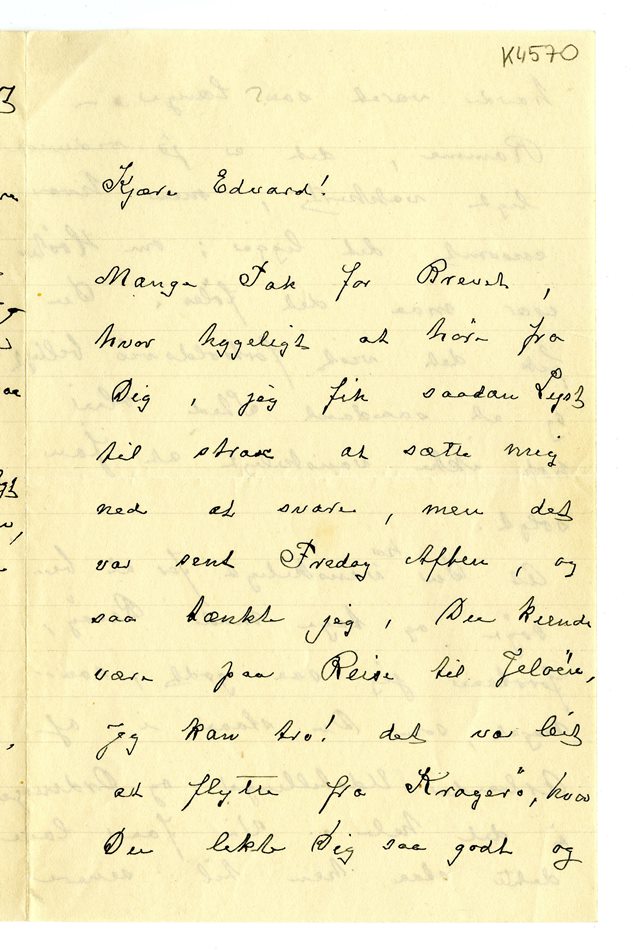 K4570
Kjære Edvard!
Mange Tak for Brevet,
hvor hyggeligt at høre fra
Dig, jeg fik saadan Lyst
til strax at sætte mig
ned at svare, men det
var sent Fredag Aften, og
saa tænkte jeg, Du kunde
være paa Reise til Jeløen,
jeg kan tro! det var leit
at flytte fra Kragerö, hvor
Du likte Dig saa godt og